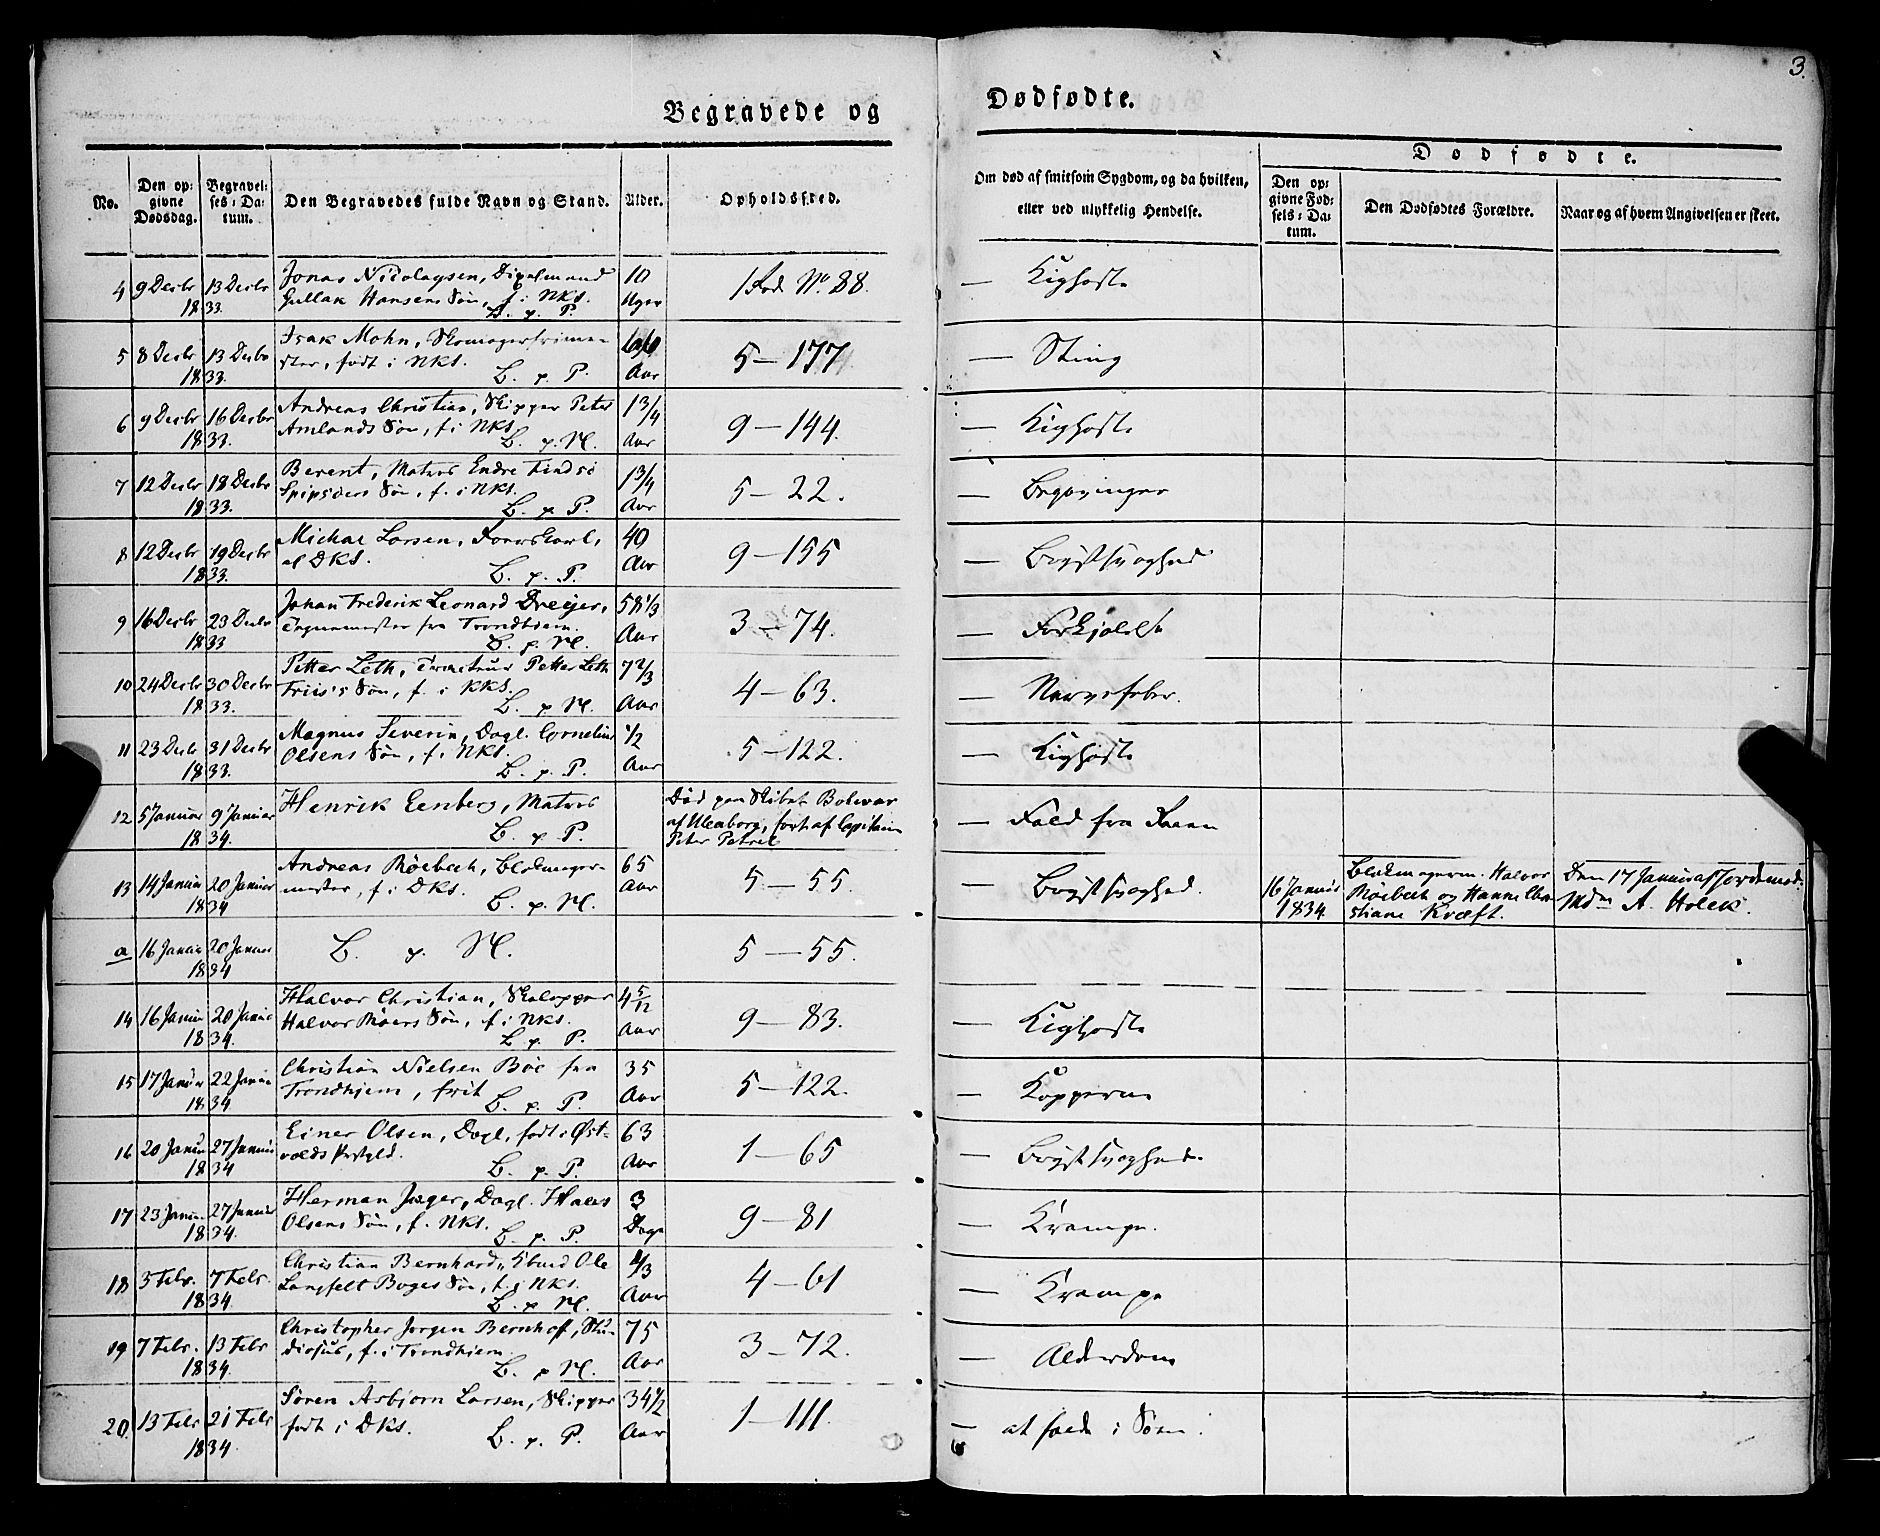 3.
Begravede og Dødfødte.
No.
Den op-
givne
Dødsdag.
Begravel-
ses-Da-
tum.
Den Begravedes fulde Navn og Stand.
Alder.
Opholdssted.
Om død af smitsom Sygdom, og da hvilken,
eller ved ulykkelig Hendelse.
Dødfødte.
Den op-
givne Fød-
sels-Da-
tum.
Den Dødfødtes Forældre.
Naar og af hvem Angivelsen er skeet.
4 9 Decbr 13 Decbr Jonas Nicolaysen, 10 1 Rod. No. 88. — Kighoste
1833. Gullak Hansens Søn, f. i NKS. Uger
B. p. P.
5 8 Decbr 13 Decbr Isak Mohn, 5 — 177 — Sting
1833. ster, født i NKS. B. p. P. Aar
6 9 Decbr 16 Decbr Andreas Christian, Skipper Peter 1 3/4 9 — 144. — Kighoste
1833. Amlands Søn, f. i NKS. B. p. N. Aar
7 12 Decbr 18 Decbr Berent, Matros Endre 1 3/4 5 — 22. —
1833. Søn, f. i NKS. B. p. P. Aar
8 12 Decbr 19 Decbr Michael Larsen, 40 9 — 155 — Brystsvaghed
1833. al DKS. B. p. P. Aar
9 16 Decbr 23 Decbr Johan Frederik Leonard Dreijer, 58 1/3 3 — 74. — Forkjølelse
1833 Tegnemester fra Trondhiem. B. p. N. Aar
10 24 Decbr 30 Decbr Petter Leth, Petter Leth 7 2/3 4 — 63. — Nervefeber.
1833. Friis's Søn, f. i KKS. B. p. N. Aar
11 23 Decbr 31 Decbr Magnus Severin, Dagl. Cornelius 1/2 5 — 122. — Kighoste
1833. Olsens Søn, f. i NKS. B. p. P. Aar
12 5 Januar 9 Januar Henrik Eenberg, Matros Død paa Skibet Bolivar — Fald fra Raaen
1834. B. p. P. af Uleaborg, ført af Capitain
Peter Petrel
13 14 Januar 20 Januar Andreas Røebech, Blokmager- 65 5 — 55. — Brystsvaghed. 16 Januar Blokmagerm. Halvor Den 17 Januar af Jordemod.
1834 mester, f. i DKS. B. p. N. Aar 1834. Røebech og Hanne Chri- Mdm A. Holck.
stiane Kræft.
a 16 Januar 20 Januar B. p. N. 5 — 55.
1834
14 16 Januar 20 Januar Halvor Christian, 4 5/12 9 — 83. — Kighoste
1834. Halvor Røers Søn, f. i NKS. B. p. P. Aar
15 17 Januar 22 Januar Christian Nielsen Böe fra 35 5 — 122. — Kopperne
1834 Trondhjem, B. p. P. Aar
16 20 Januar 27 Januar Einer Olsen, Dagl., født i Øst- 63 1 — 65 — Brystsvaghed.
1834 volds Prstgld. B. p. P. Aar
17 23 Januar 27 Januar Herman Jæger, Dagl. Haens 3 9 — 81 — Krampe.
1834. Olsens Søn, f. NKS. B. p. P. Dage
18 3 Febr. 7 Febr. Christian Bernhard, Ole 1/3 4 — 61 — Krampe
1834. Langfelt Boges Søn, f. i NKS. B. p. N. Aar
19 7 Febr. 13 Febr Christopher Jørgen Bernhoft, Stu- 75 3 — 72. — Alderdom
1834. diosus, f. i Trondhiem. B. p. N. Aar
20. 13 Febr 21 Febr Søren Asbjørn Larsen, Skipper 34 1/2 1 — 111. — at falde i Søen.
1834. født i DKS. B. p. P. Aar